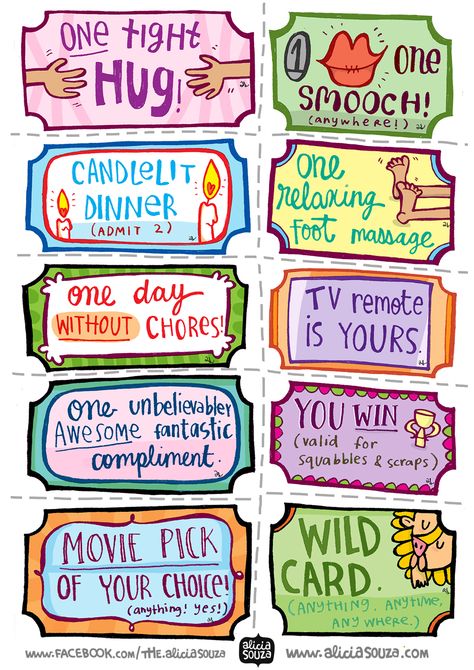 ONE tight
HUG!
1 one
SMOOCH!
(anywhere!)
CANDLELIT
DINNER
(ADMIT 2)
one
relaxing
foot massage
one day
WITHOUT CHORES!
TV remote
is YOURS.
one unbelievabley
AWESOME fantastic
compliment.
YOU WIN
(valid for
squabbles & scraps)
MOVIE PICK
OF YOUR CHOICE!
(anything! yes!)
WILD
CARD.
(ANYTHING. ANYTIME,
ANY WHERE.)
www.FACEBOOK.com/THE.aliciaSouza
alicia
souza
www.aliciaSouza.com